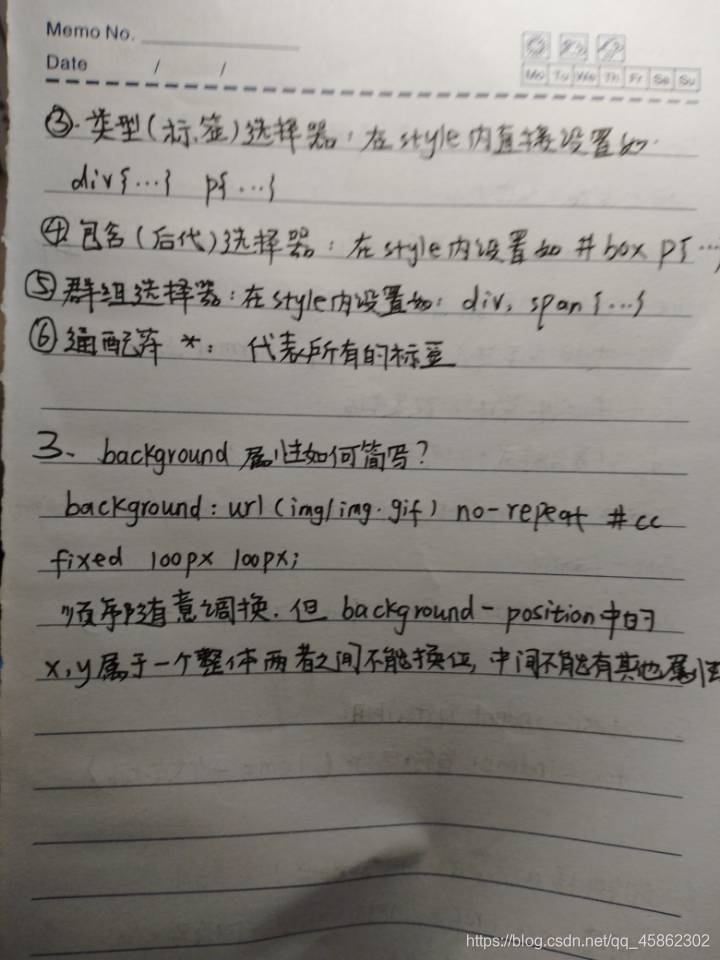 Memo No.
Date / /
Mo Tu We Th Fr Sa Su
③.类型(标签)选择器：在style内直接设置如.
div{…} p{…}
④包含(后代)选择器：在style内设置如 #box p{…
⑤群组选择器：在style内设置如：div, span{…}
⑥通配符 *： 代表所有的标签
3、background 属性如何简写？
background: url(img/img.gif) no-repeat #cc
fixed 100px 100px;
顺序随意调换. 但 background-position中的
x,y属于一个整体两者之间不能换位, 中间不能有其他属性
https://blog.csdn.net/qq_45862302